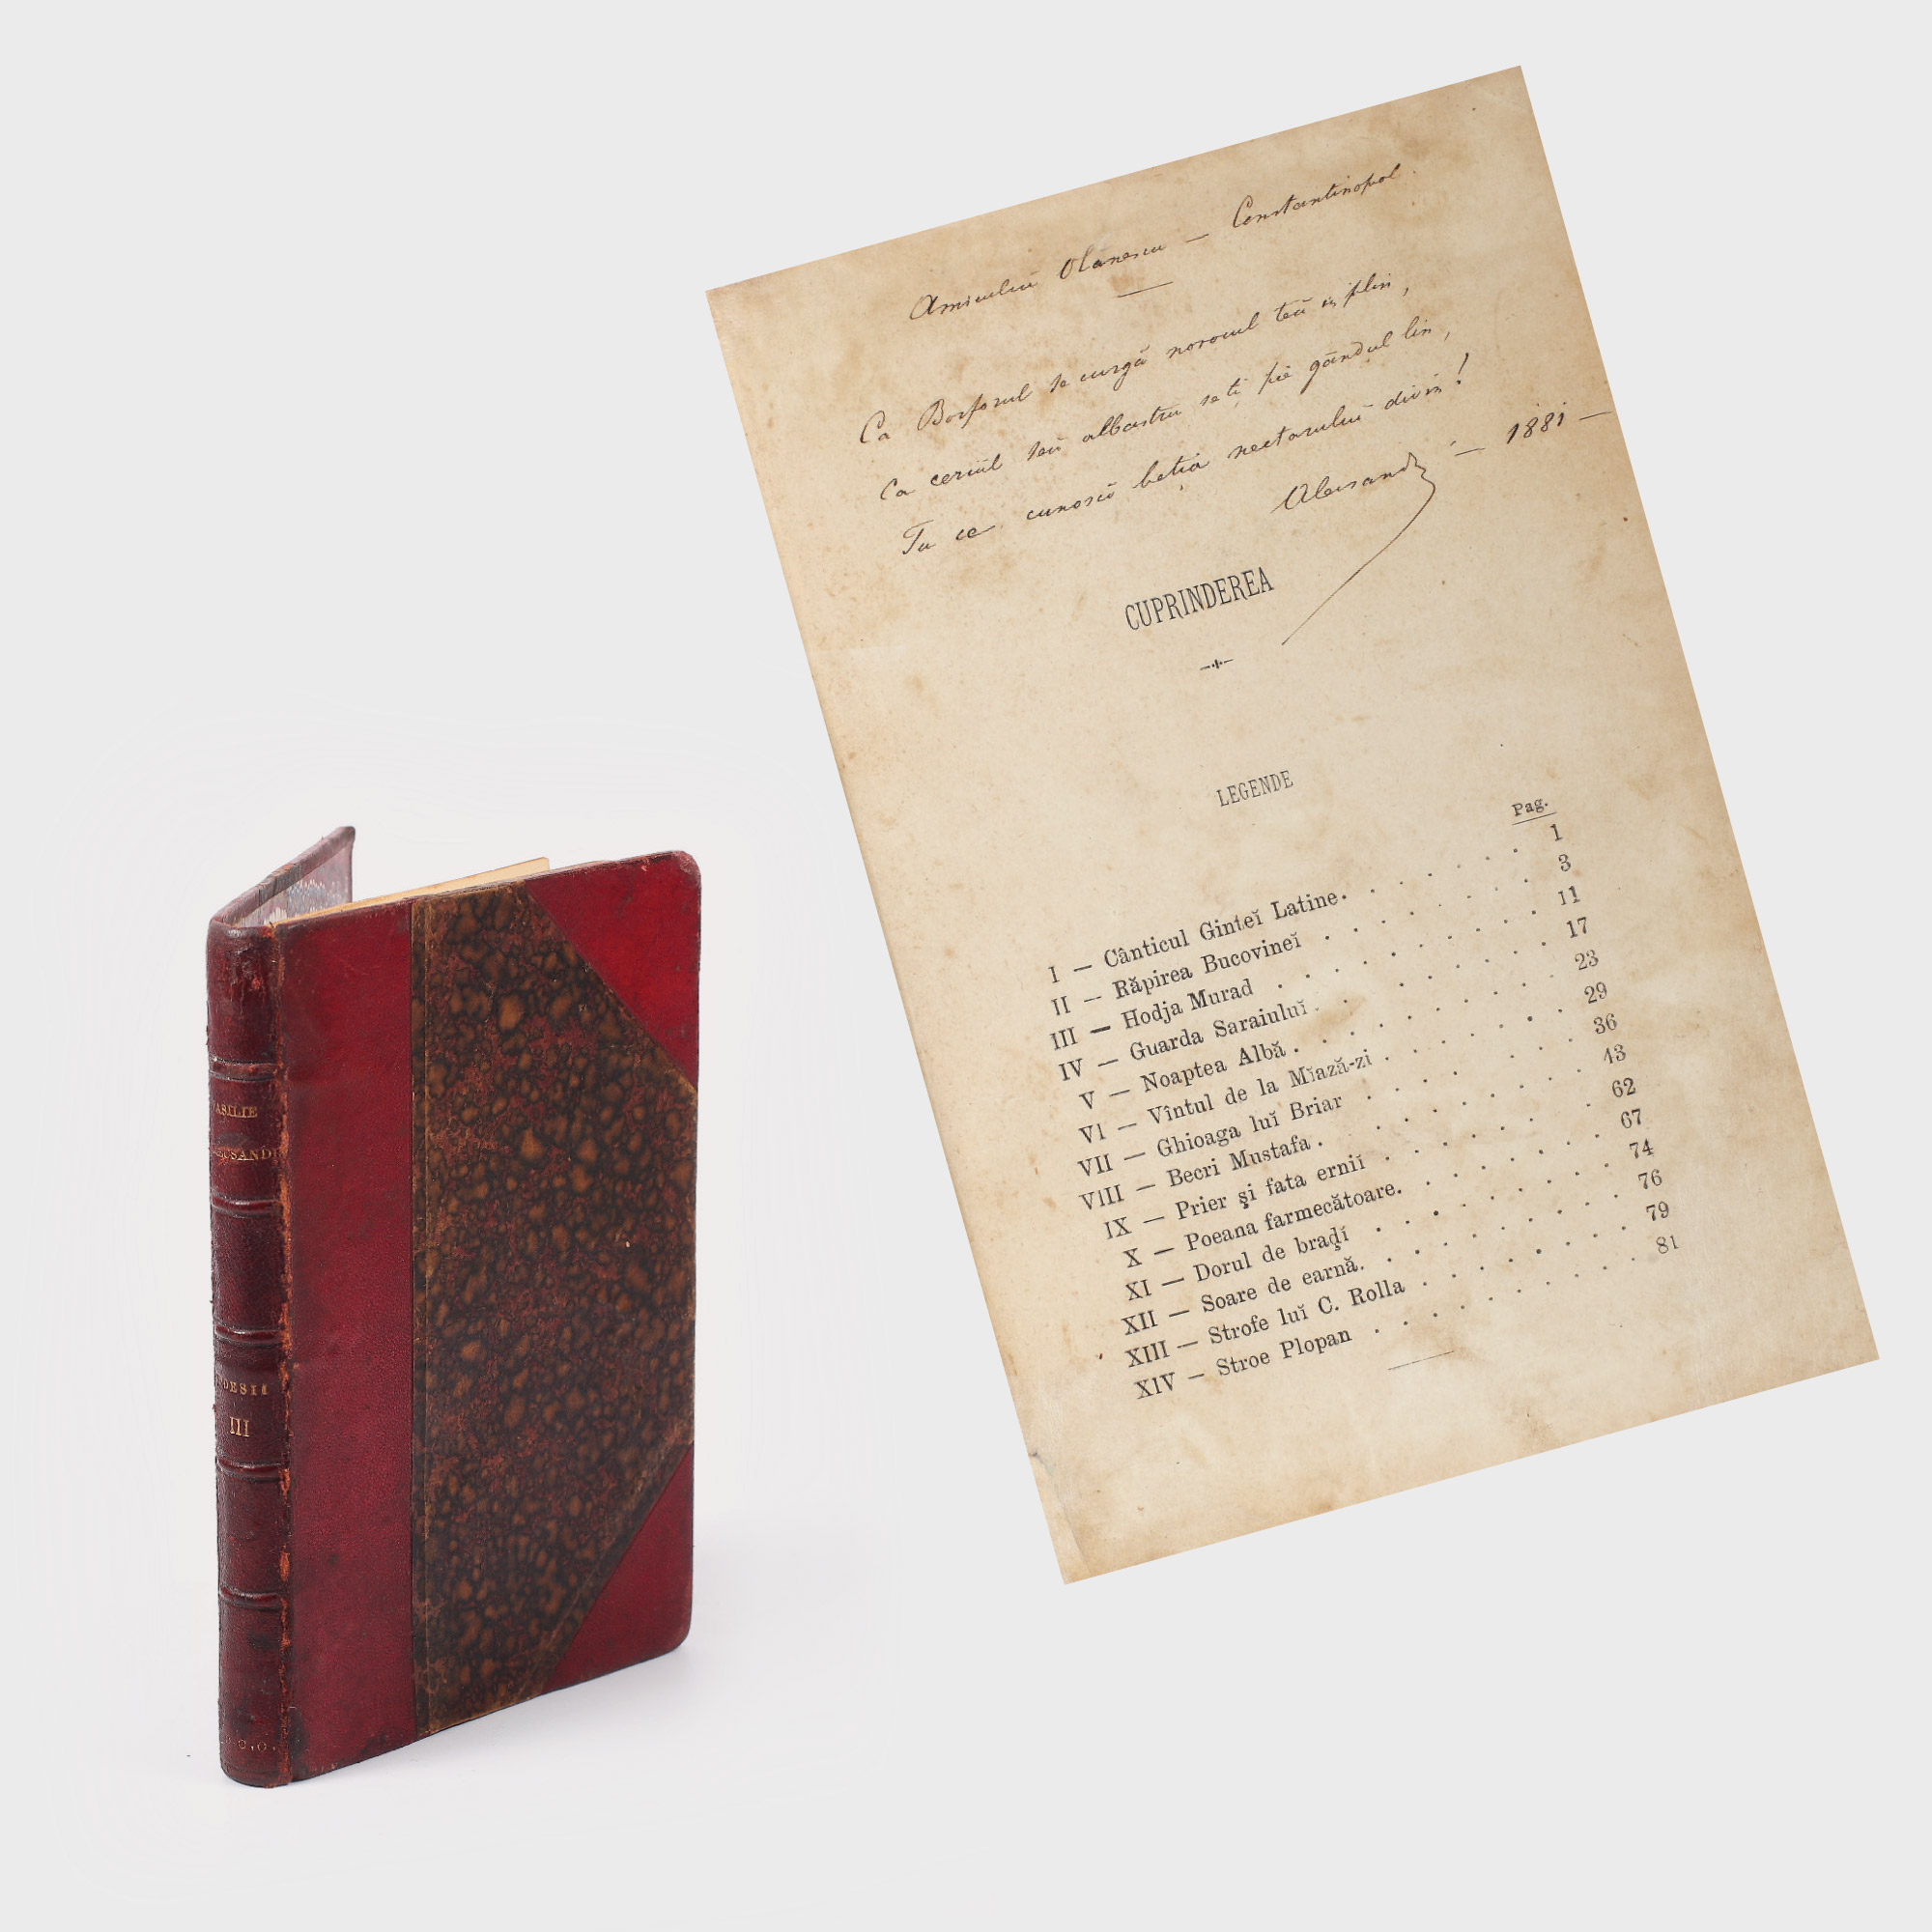 ASILIE
CSAND
OESII
III
C.O.
Amiculuĭ Olănescu — Constantinopol.
Ca Bosforul se curgă norocul teŭ in plin,
Ca ceriul seŭ albastru se ți fie gândul lin,
Tu ce cunoscĭ beția nectaruluĭ divin!
Alecsandri — 1881 —
CUPRINDEREA
LEGENDE
Pag.
I — CânticulGinteĭ Latine. 1
II — Răpirea Bucovineĭ 3
III — Hodja Murad 11
IV — Guarda Saraiuluĭ. 17
V — Noaptea Albă. 23
VI — Vîntul de la Mĭază-zi 29
VII — Ghioaga luĭ Briar 36
VIII — Becri Mustafa. 43
IX — Prier şi fata erniĭ 62
X — Poeana farmecătoare. 67
XI — Dorul de bradĭ 74
XII — Soare de earnă. 76
XIII — Strofe luĭ C. Rolla 79
XIV — Stroe Plopan 81